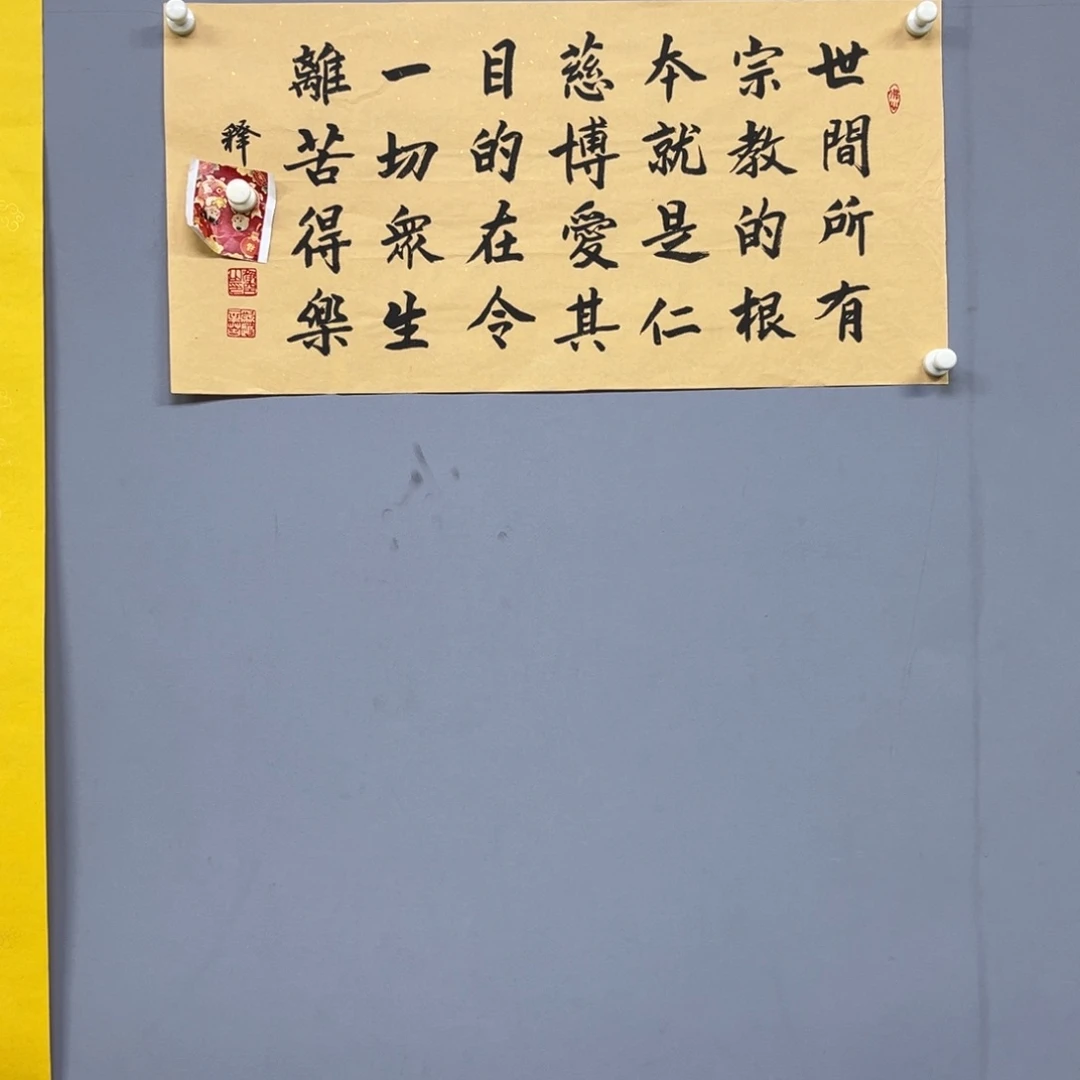 世間所有
宗教的根
本就是仁
慈博愛其
目的在令
一切眾生
離苦得樂
釋